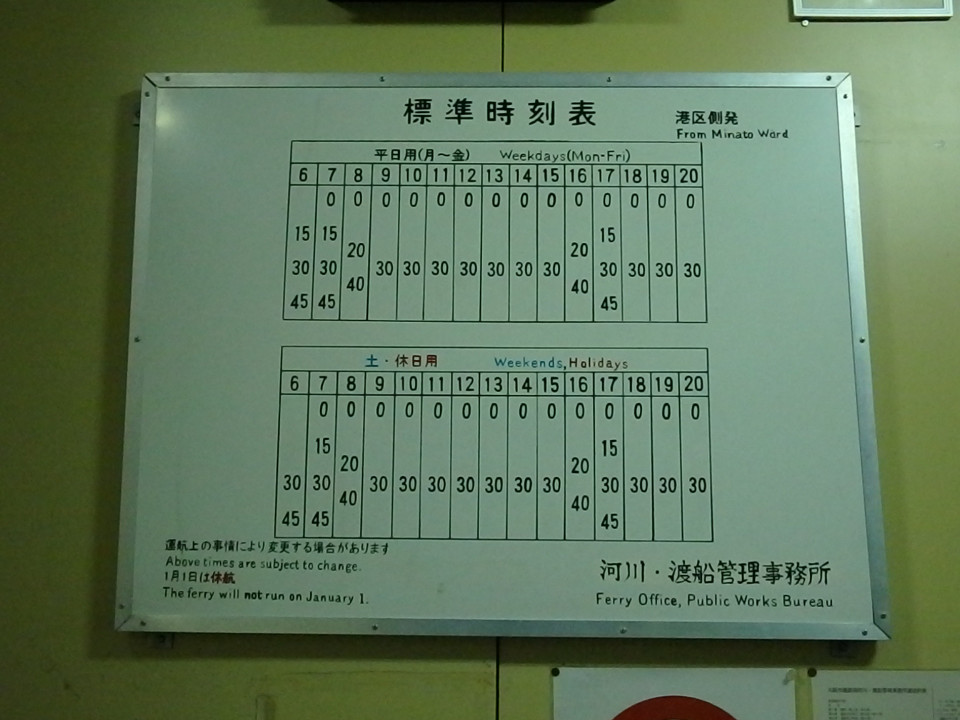 標準時刻表
港区側発
From Minato Word
平日用(月～金) Weekdays(Mon-Fri)
6 7 8 9 10 11 12 13 14 15 16 17 18 19 20
0 0 0 0 0 0 0 0 0 0 0 0 0 0
15 15 15
20 20
30 30 30 30 30 30 30 30 30 30 30 30 30
40 40
45 45 45
土・休日用 Weekends,Holidays
6 7 8 9 10 11 12 13 14 15 16 17 18 19 20
0 0 0 0 0 0 0 0 0 0 0 0 0 0
15 15
20 20
30 30 30 30 30 30 30 30 30 30 30 30 30
40 40
45 45 45
運航上の事情により変更する場合があります
Above times are subject to change.
1月1日は休航
The ferry will not run on January 1.
河川・渡船管理事務所
Ferry Office, Public Works Bureau